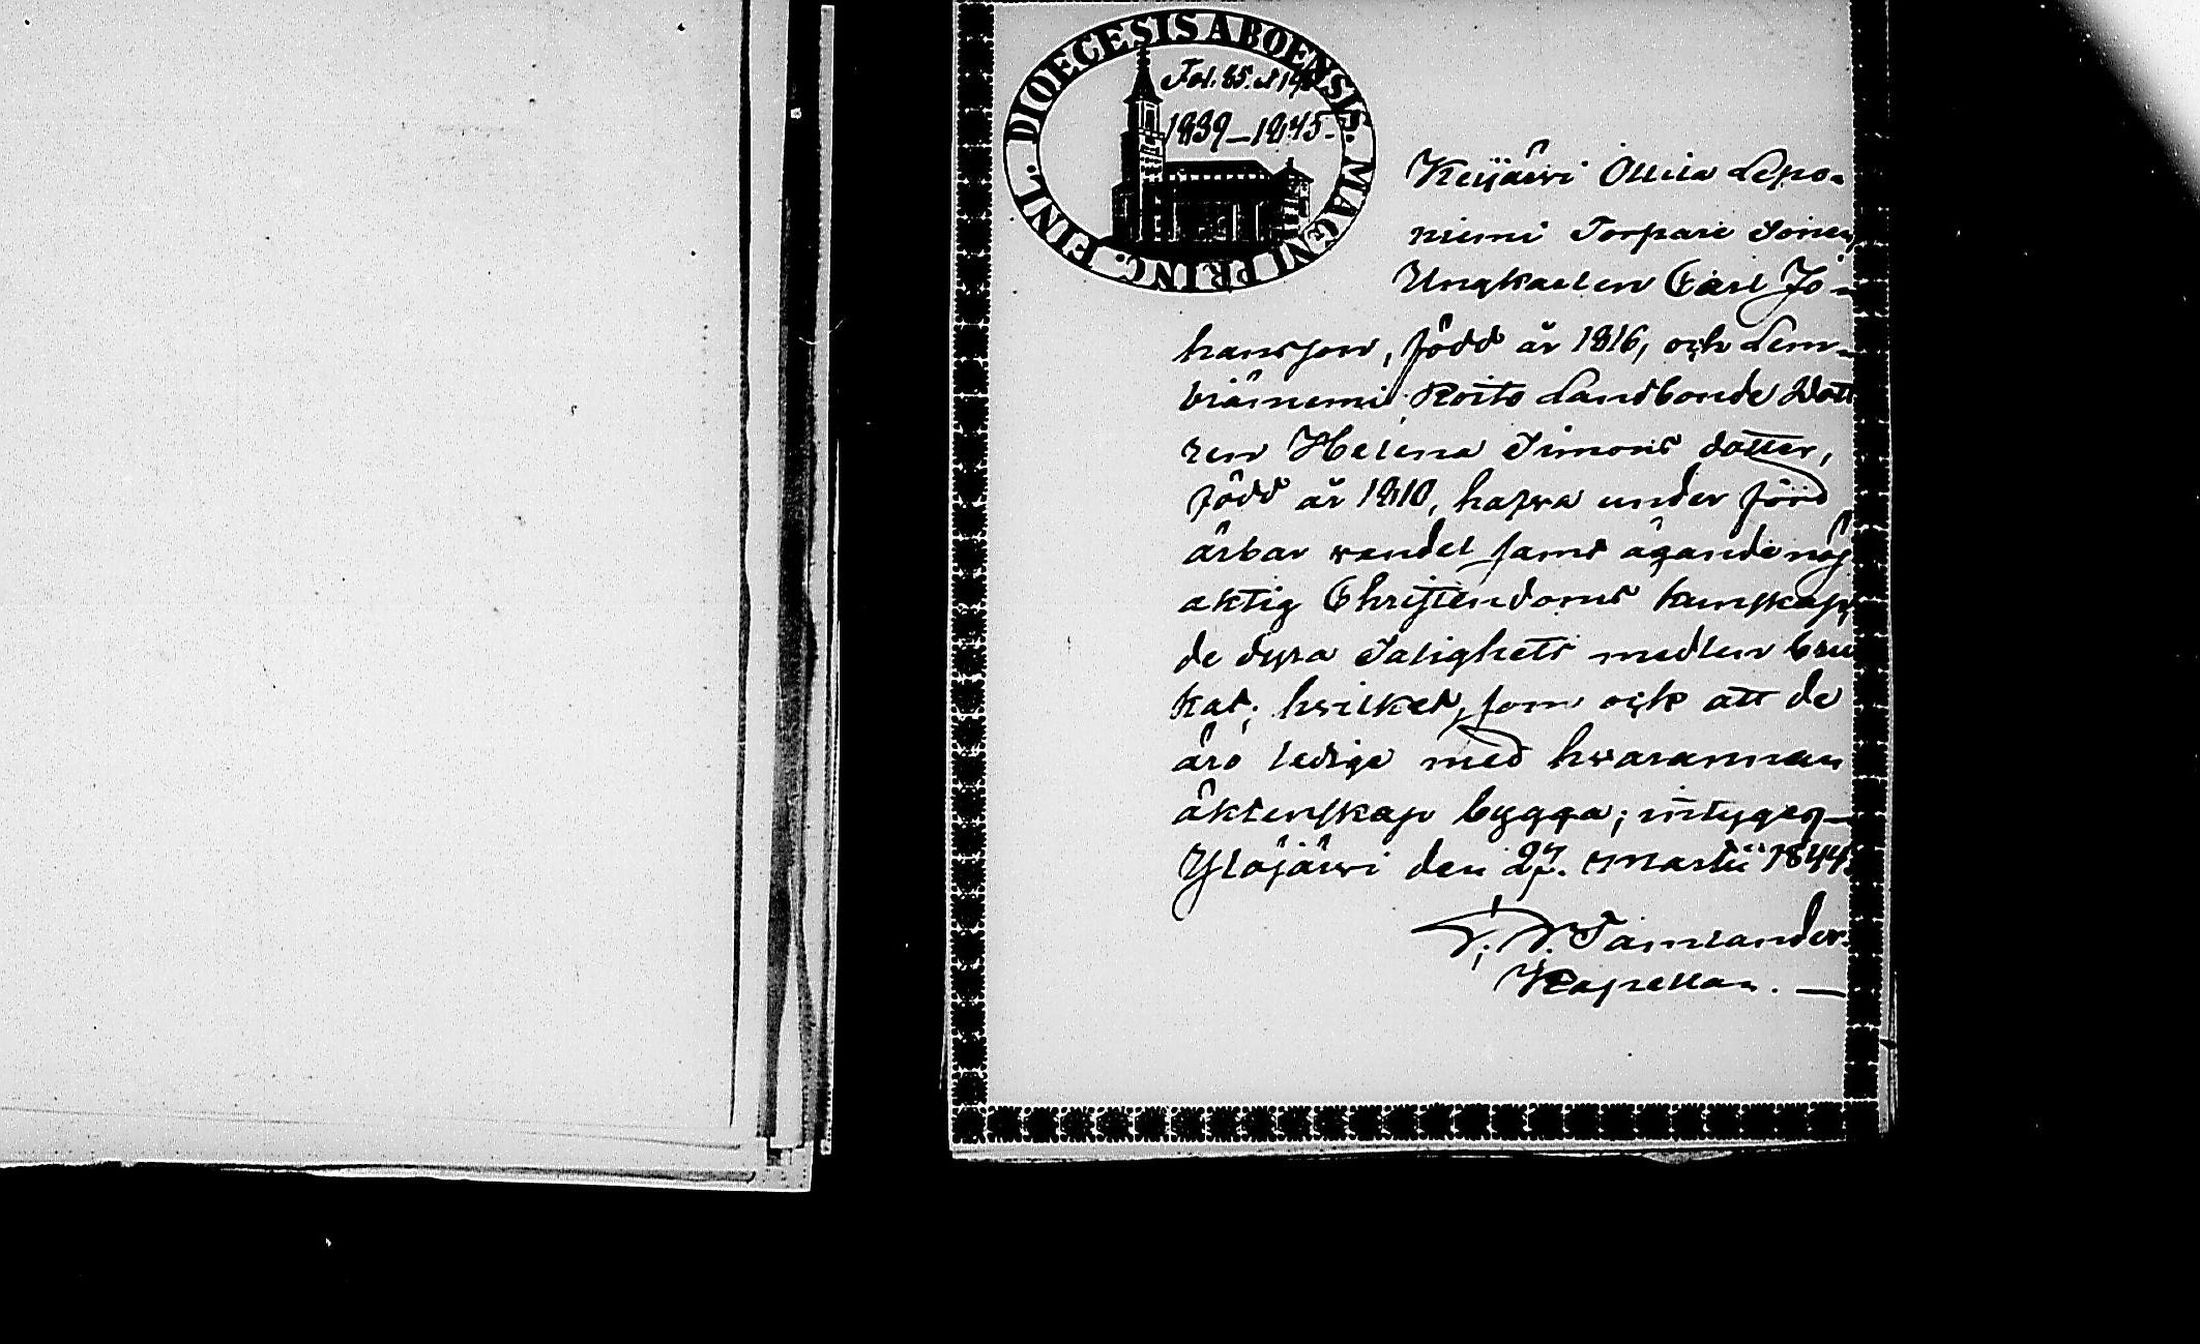 DIOECESIS ABOENSIS. MAGNI PRINC. FINL.
Fol. 85. et
1839–1845.
Keijärvi Ollila Lepo-
niemi Torpare Sonen
Ungkarlen Carl Jo-
hansson, född år 1816, och Lem-
biäniemi Koito Landbonde Dott
ren Helena Simons dotter,
född år 1810, hafva under förd
ärbar vandel samt ägande nöj
aktig Christendoms kunskap,
de dyra Salighets medlen bru
kat; hvilket, som ock att de
äro lediga med hvarannan
äktenskap bygga; intygeg
Ylöjärvi den 27. Martii 1844.
Tamlander.
Kapellan.